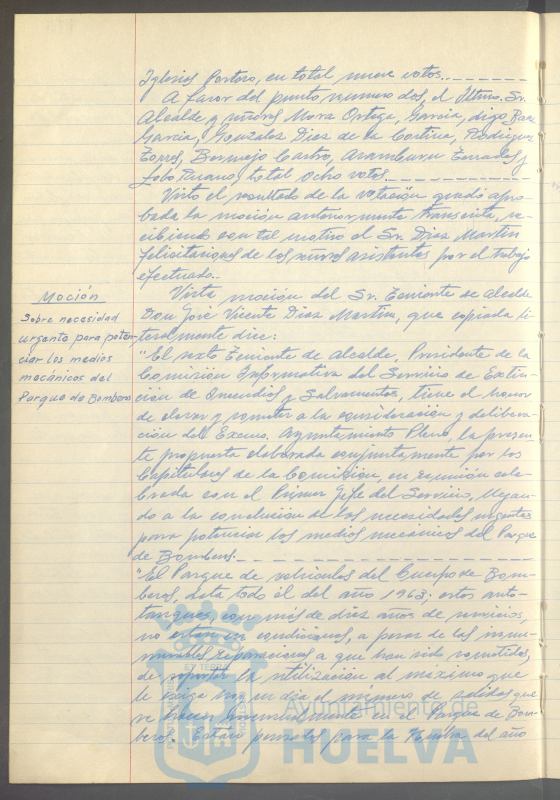 Iglesias Portero, en total nueve votos.
A favor del punto número dos, el Iltmo. Sr.
Alcalde y señores Mora Ortega, García, digo
García, González Díaz de la Cortina, Rodríguez
Torres, Bermejo Castro, Aramburu
Lobo total ocho votos.
Visto el resultado de la votación quedó apro-
bada la moción anteriormente transcrita, re-
cibiendo con tal motivo el Sr. Díaz Martín
felicitaciones de los señores asistentes por el trabajo
efectuado.
Moción
Sobre necesidad
urgente para poten-
ciar los medios
mecánicos del
Parque de Bomberos
Vista moción del Sr. Teniente de alcalde
Don José Vicente Díaz Martín, que copiada li-
teralmente dice:
"El sexto Teniente de alcalde, Presidente de la
Comisión Informativa del Servicio de Extin-
ción de Incendios y Salvamentos, tiene el honor
de elevar y someter a la consideración y delibera-
ción del Excmo. Ayuntamiento Pleno, la presen-
te propuesta elaborada conjuntamente por los
Capitulares de la Comisión, en reunión cele-
brada con el Primer Jefe del Servicio, llegan-
do a la conclusión de las necesidades urgentes
para potenciar los medios mecánicos del Parque
de Bomberos.
"El Parque de vehículos del Cuerpo de Bom-
beros, data todo él del año 1963: estos auto-
tanques, con más de diez años de servicios,
no están en condiciones, a pesar de las innu-
merables reparaciones a que han sido sometidos,
de soportar la utilización al máximo que
le exige hoy en día el número de salidas que
se hacen mensualmente en el Parque de Bom-
beros. Estaro pensados para la Huelva del año
Ayuntamiento de
HUELVA